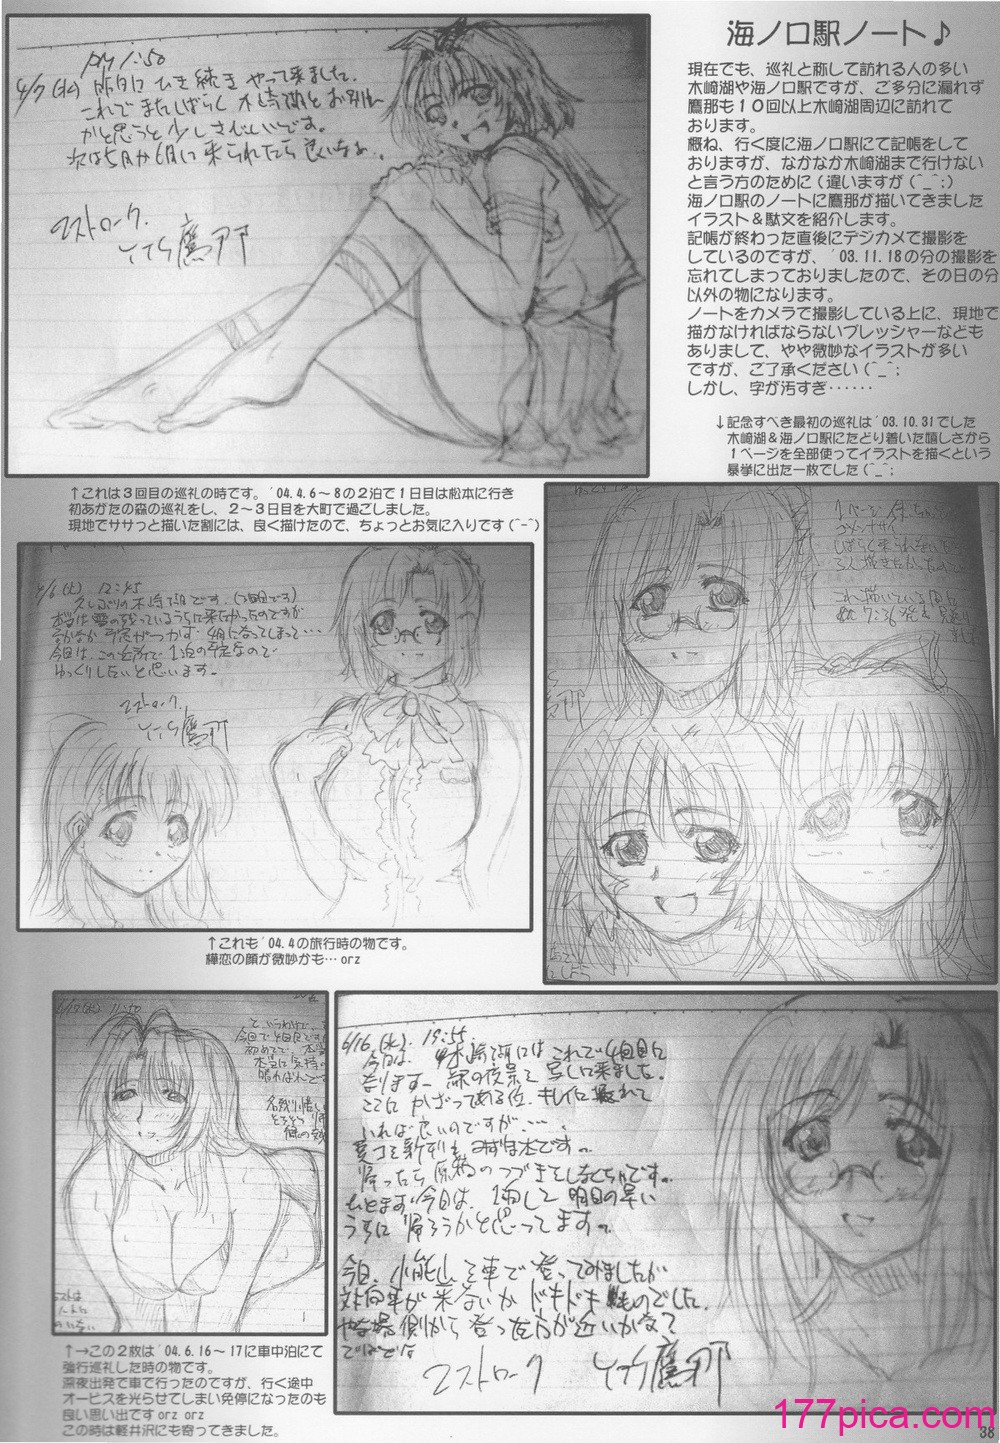 海ノロ駅ノート♪
現在でも、巡礼と称して訪れる人の多い
木崎湖や海ノロ駅ですが、ご多分に漏れず
鷹那も10回以上木崎湖周辺に訪れて
おります。
概ね、行く度に海ノロ駅にて記帳をして
おりますが、なかなか木崎湖まで行けない
と言う方のために(違いますが(^_^;)
海ノロ駅のノートに鷹那が描いてきました
イラスト&駄文を紹介します。
記帳が終わった直後にデジカメで撮影を
しているのですが、'03.11.18の分の撮影を
忘れてしまっておりましたので、その日の分
以外の物になります。
ノートをカメラで撮影している上に、現地で
描かなければならないプレッシャーなども
ありまして、やや微妙なイラストが多い
ですが、ご了承ください(^_^;
しかし、字が汚すぎ……
↓記念すべき最初の巡礼は'03.10.31でした
木崎湖&海ノロ駅にたどり着いた嬉しさから
1ページを全部使ってイラストを描くという
暴挙に出た一枚でした(^_^;
PM 1:50
4/7(水) 昨日にひき続きやって来ました。
これでまたしばらく木崎湖とお別れ
かと思うと少しさびしいです。
次は5月か6月に来られたら良いなぁ..
エストローク.
↑これは3回目の巡礼の時です。'04.4.6～8の2泊で1日目は松本に行き
初あがたの森の巡礼をし、2～3日目を大町で過ごしました。
現地でササっと描いた割には、良く描けたので、ちょっとお気に入りです(^-^)
4/6(火) 12:45
久しぶりの木崎湖です。(3回目です)
本当は雪の残っているうちに来たかったのですが
なかなか予定がつかず、4月になってしまって…
今日は、この近所で1泊の予定なので
ゆっくりしたいと思います。
エストローク.
↑これも'04.4の旅行時の物です。
樺恋の顔が微妙かも…orz
6/16(水) 19:55.
今日は、木崎湖にはこれで4回目に
なります。緑の夜景を写しに来ました。
ここにかざってある位、キレイに撮れて
いれば良いのですが...
夏コミ新刊もみずほ本です。
帰ったら原稿のつづきをしなくちゃです。
ひとまず今日は、1泊して明日の早い
うちに帰ろうかと思ってます。
今日、小熊山を車で登ってみましたが
対向車が来ないかドキドキものでした.
側から登った方が近いかなて
ではでは
エストローク
↑→この2枚は'04.6.16～17に車中泊にて
強行巡礼した時の物です。
深夜出発で車で行ったのですが、行く途中
オービスを光らせてしまい免停になったのも
良い思い出ですorz orz
この時は軽井沢にも寄ってきました。
177pica.com
38